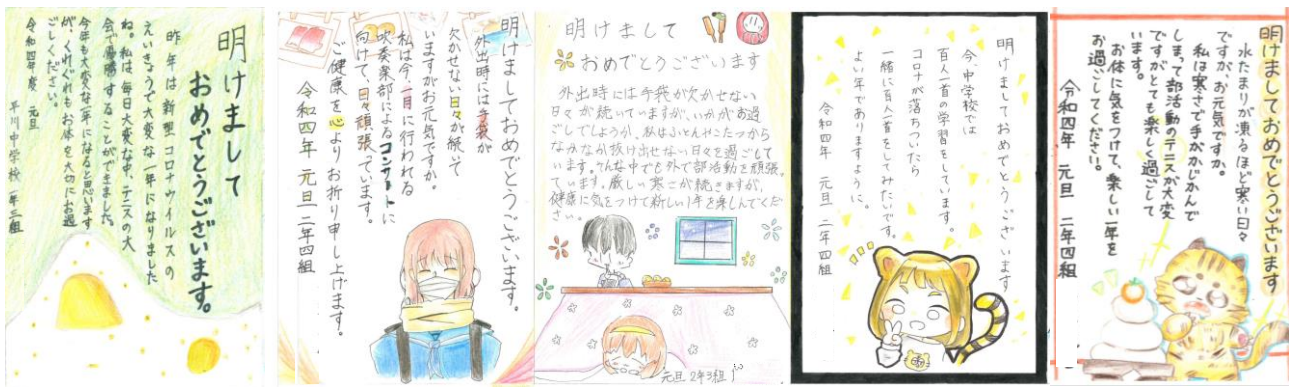 明けまして
おめでとうございます。
昨年は新型コロナウイルスの
えいきょうで大変な一年になりました
ね。私は毎日大変な中、テニスの大
会で優勝することができました。
今年も大変な一年になると思います
が、くれぐれもお体を大切にお過
ごしください。
令和四年度 元旦
平川中学校 一年三組
明けましておめでとうございます。
外出時には手袋が
欠かせない日々が続いて
いますがお元気ですか。
私は今、一月に行われる
吹奏楽部によるコンサートに
向けて、日々頑張っています。
ご健康を心よりお祈り申し上げます。
令和四年 元旦 二年四組
明けまして
おめでとうございます
外出時には手袋が欠かせない
日々が続いていますが、いかがお過
ごしでしょうか。私はふとんやこたつから
なかなか抜け出せない日々を過ごして
います。そんな中でも外で部活動を頑張っ
ています。厳しい寒さが続きますが、
健康に気をつけて新しい1年を楽しんでくだ
さい。
元旦 2年3組
明けましておめでとうございます
今、中学校では
百人一首の学習をしています。
コロナが落ちついたら
一緒に百人一首をしてみたいです。
よい年でありますように。
令和四年 元旦 二年四組
明けましておめでとうございます
水たまりが凍るほど寒い日々
ですが、お元気ですか。
私は寒さで手がかじかんで
しまって部活動のテニスが大変
ですがとても楽しく過ごして
います。
お体に気をつけて、楽しい一年を
お過ごしてください。
令和四年 元旦 二年四組